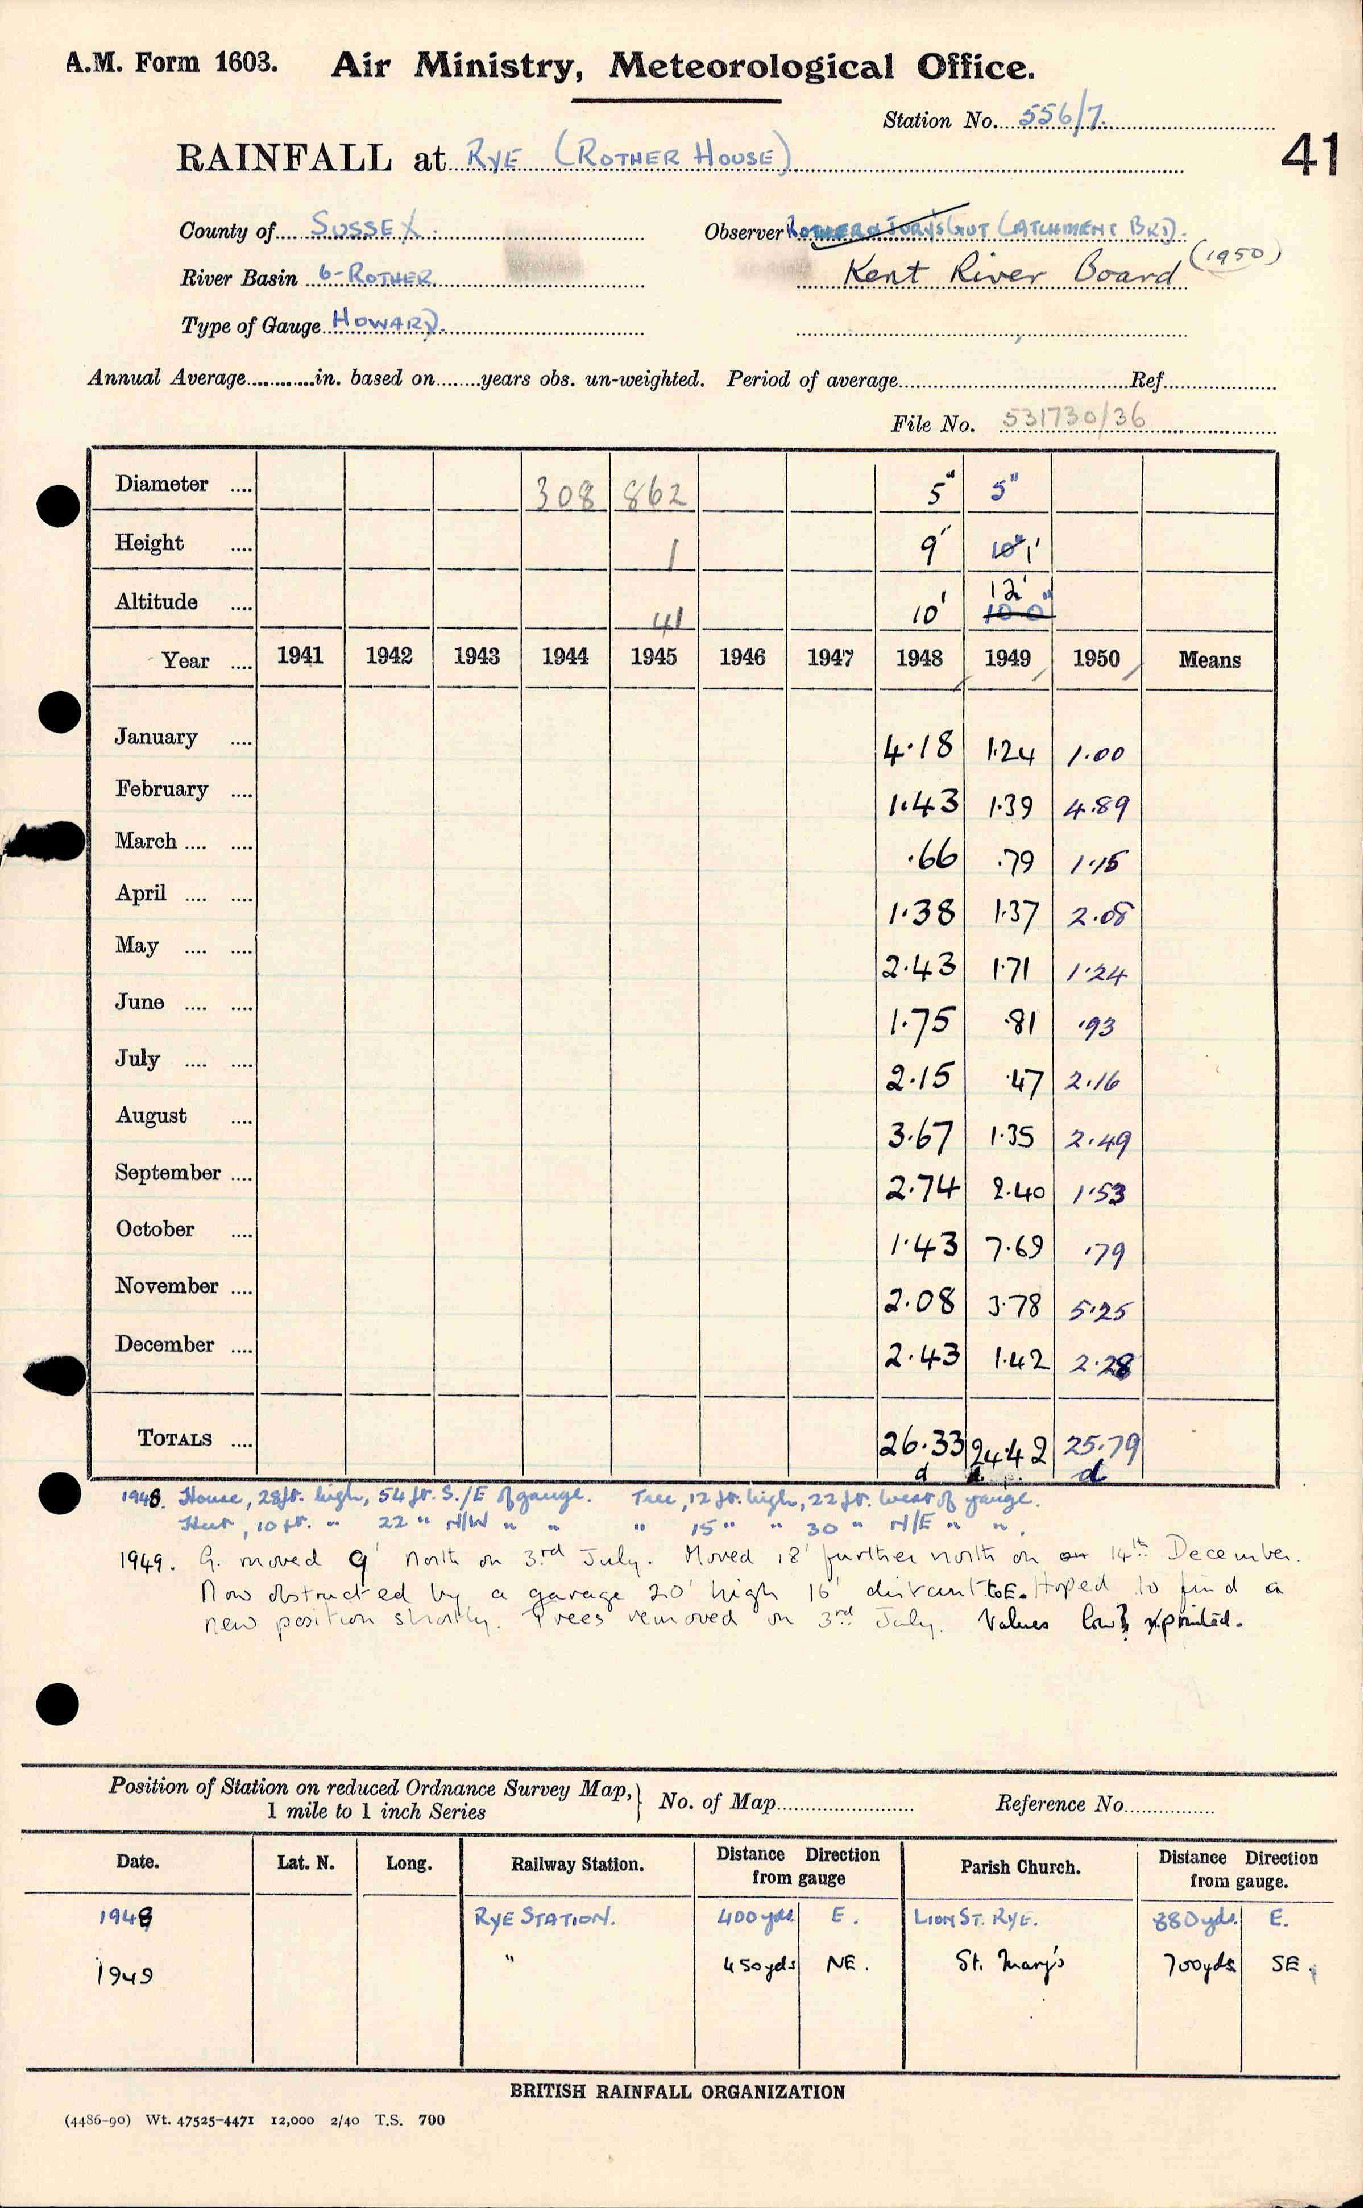 A.M. Form 1603. Air Ministry, Meteorological Office.
Station No. 556/7.
41
RAINFALL at RYE (ROTHER HOUSE)
County of SUSSEX.
Observer ROTHER & JURY'S GUT CATCHMENT BRD.
River Basin 6-ROTHER
Kent River Board (1950)
Type of Gauge HOWARD.
Annual Average............in. based on........years obs. un-weighted. Period of average.................Ref.............
File No. 531730/36
Diameter .... 308 862 5" 5"
Height .... 1 9" 10" 1'
Altitude .... 41 10' 12' 10 0"
Year .... 1941 1942 1943 1944 1945 1946 1947 1948 1949 1950 Means
January .... 4.18 1.24 1.00
February .... 1.43 1.39 4.89
March .... .... .66 .79 1.15
April .... .... 1.38 1.37 2.08
May .... .... 2.43 1.71 1.24
June .... .... 1.75 .81 .93
July .... .... 2.15 .47 2.16
August .... 3.67 1.35 2.49
September .... 2.74 2.40 1.53
October .... 1.43 7.69 .79
November .... 2.08 3.78 5.25
December .... 2.43 1.42 2.28
TOTALS .... 26.33 24.42 25.79
d d d
1948. House, 28ft. high, 54 ft. S./E of gauge. Tree, 12 ft. high, 22 ft. West of gauge.
10 ft. " 22 " N/W " " " 15 " " 30 " N/E " ".
1949. G. moved 9' north on 3rd July. Moved 18' further north on 14th December.
Now obstructed by a garage 20' high 16' distant to E. Hoped to find a
new position shortly. Trees removed on 3rd July. Values low? printed.
Position of Station on reduced Ordnance Survey Map, 1 mile to 1 inch Series } No. of Map............ Reference No............
Date. Lat. N. Long. Railway Station. Distance Direction from gauge Parish Church. Distance Direction from gauge.
1948 RYE STATION. 400 yds E. LION ST. RYE. 880 yds. E.
1949 " 450 yds NE. St. Mary's 700 yds SE.
BRITISH RAINFALL ORGANIZATION
(4486-90) Wt. 47525-4471 12,000 2/40 T.S. 700